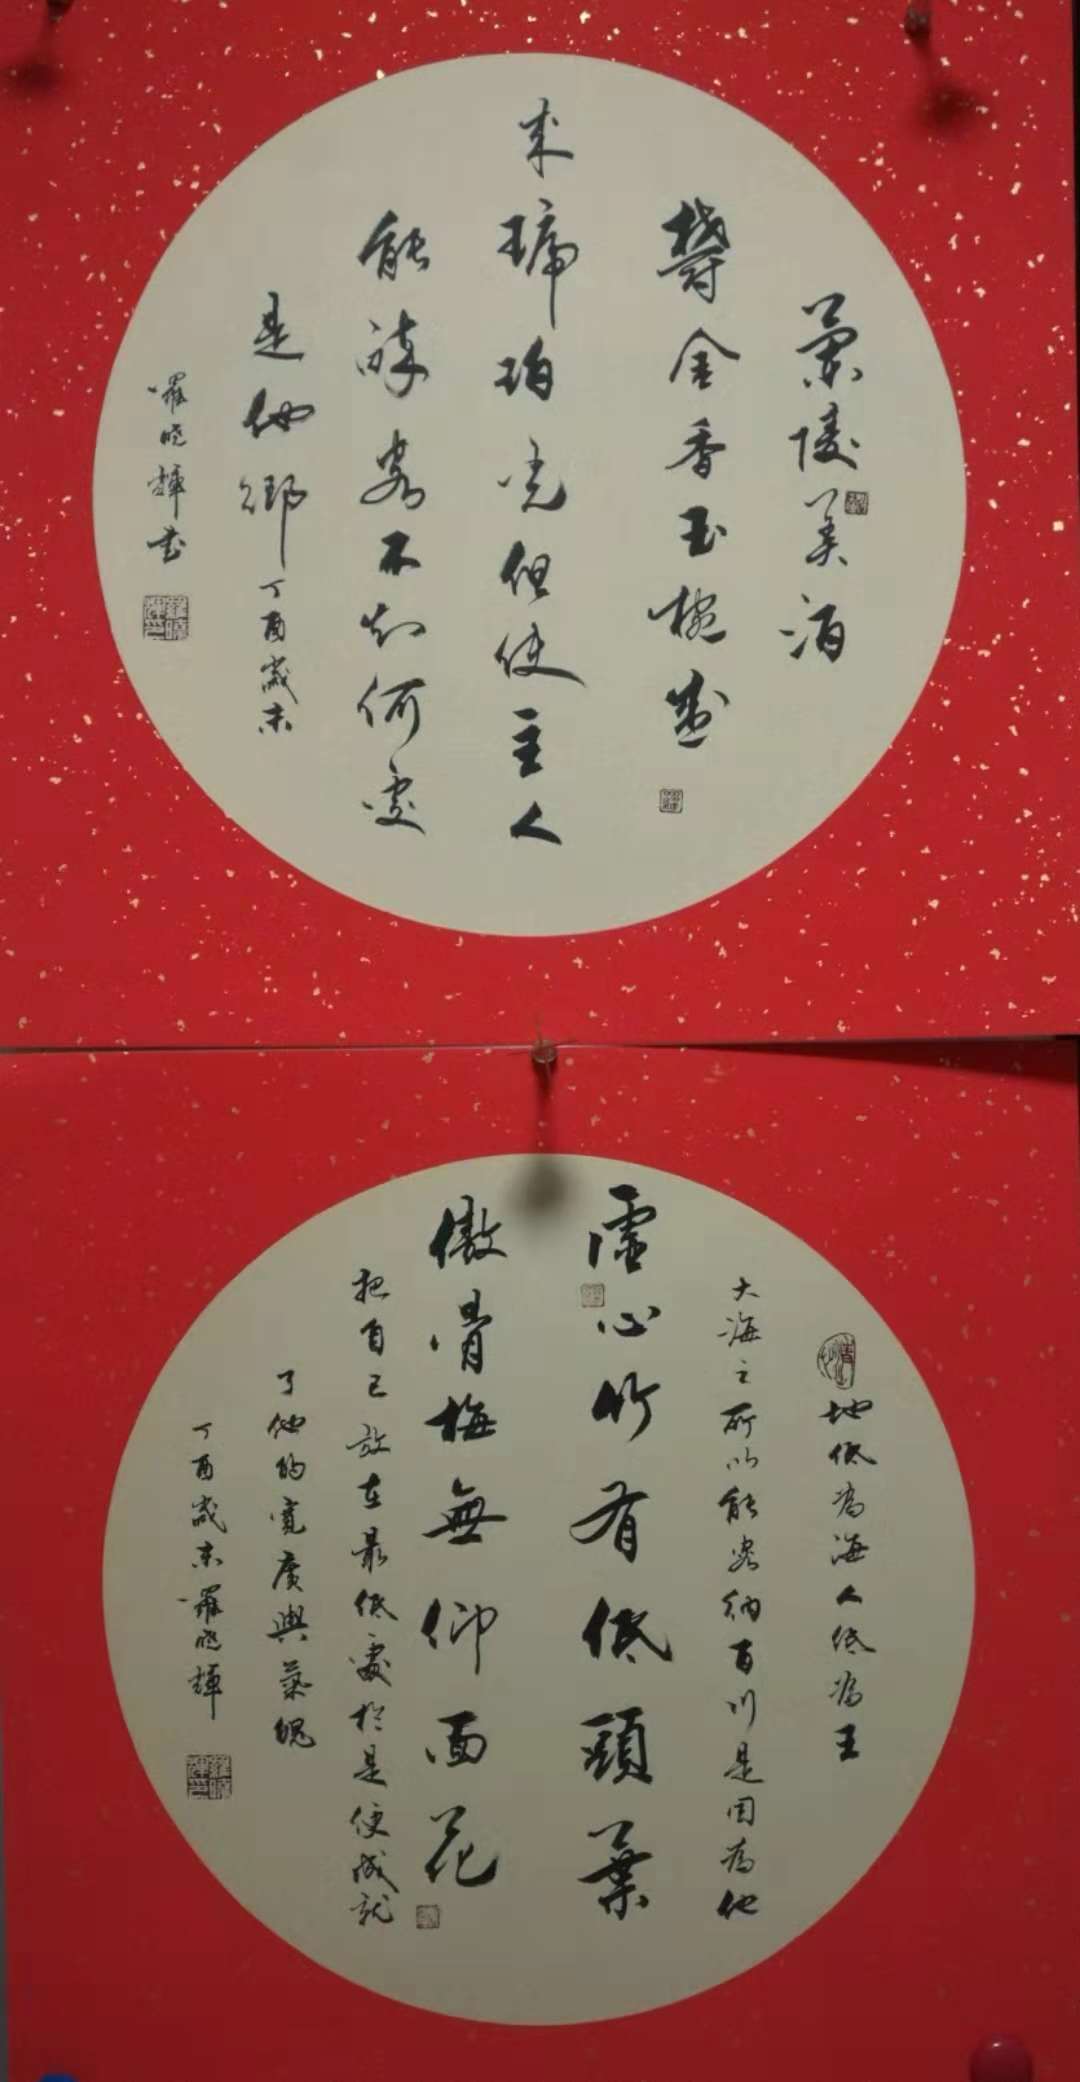 蘭陵美酒
鬱金香玉椀盛
來琥珀光但使主人
能醉客不知何處
是他鄉 丁酉歲末
羅曉輝書
地低為海人低為王
大海之所以能容納百川是因為他
虛心竹有低頭葉
傲骨梅無仰面花
把自己放在最低處於是便成就
了他的寬廣與氣魄
丁酉歲末羅曉輝